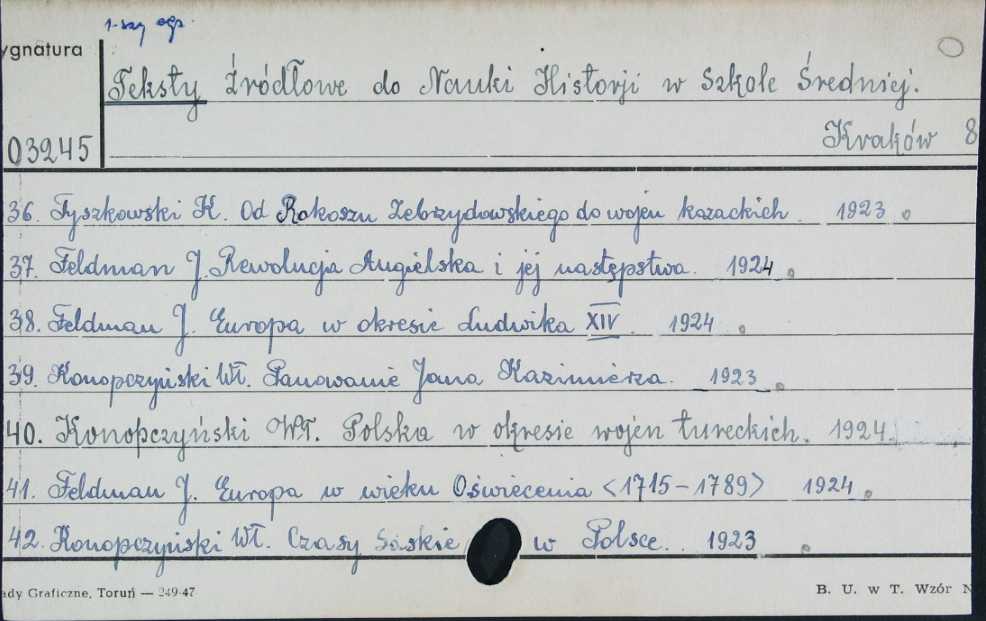 1-szy egz.
ygnatura
Teksty Źródłowe do Nauki Historji w Szkole Średniej.
03245
Kraków 8
36. Tyszkowski K. Od Rokoszu Zebrzydowskiego do wojen kozackich. 1923
37. Feldman J. Rewolucja Angielska i jej następstwa. 1924
38. Feldman J. Europa w okresie Ludwika XIV. 1924
39. Konopczyński Wł. Panowanie Jana Kazimierza. 1923
40. Konopczyński Wł. Polska w okresie wojen tureckich. 1924
41. Feldman J. Europa w wieku Oświecenia <1715-1789> 1924
42. Konopczyński Wł. Czasy Saskie w Polsce. 1923
ady Graficzne, Toruń — 249-47
B. U. w T. Wzór N